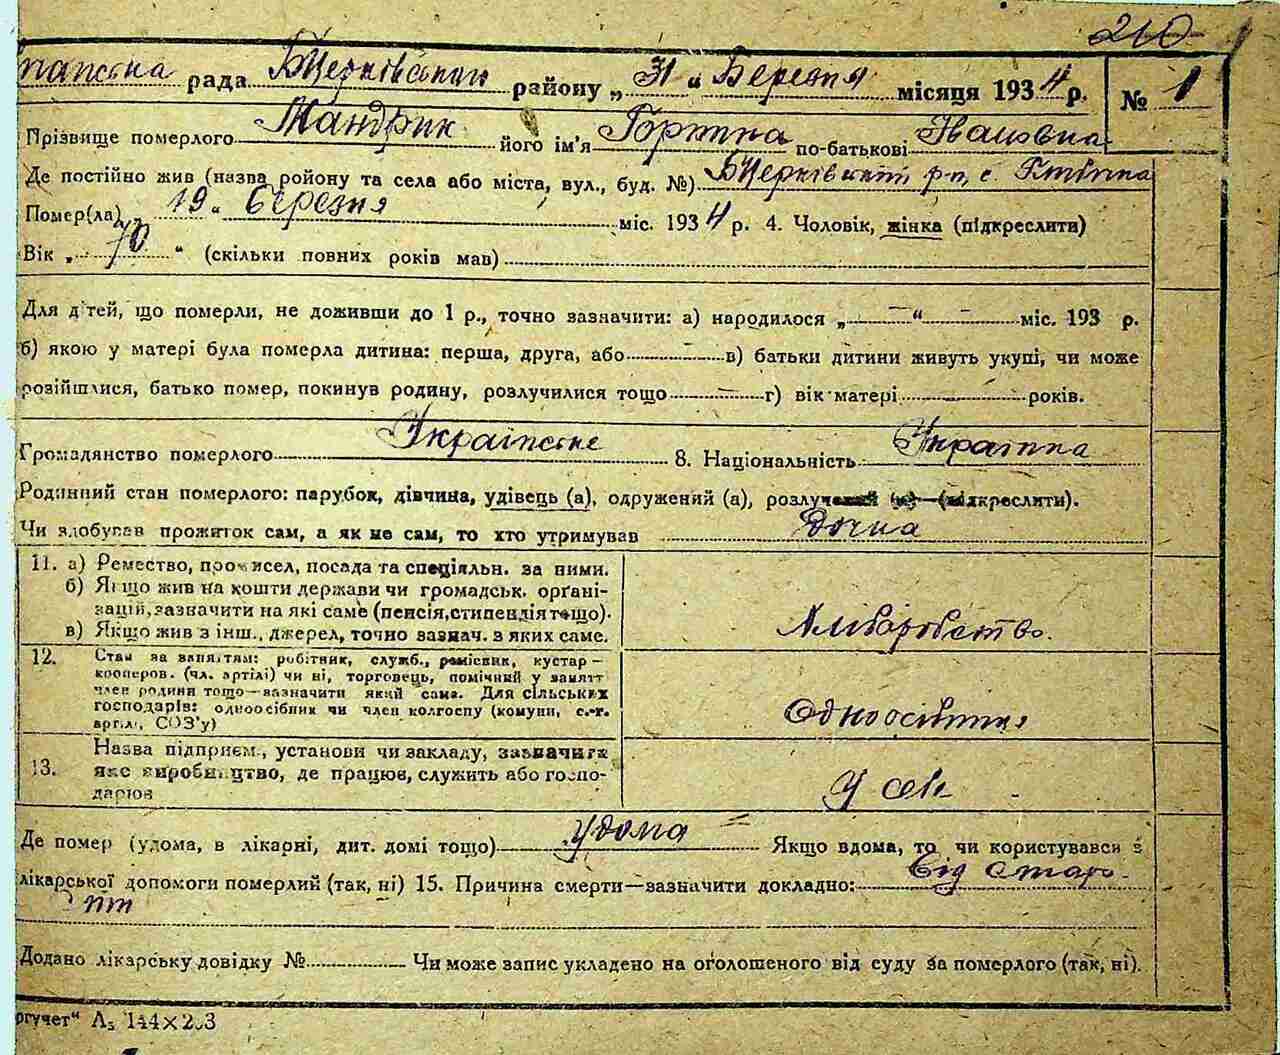 210
рада Б Церківський району „ 31 “ Березня місяця 1934 р. № 1
Прізвище померлого Мандрик його ім'я Горпина по-батькові Івановна
Де постійно жив (назва ройону та села або міста, вул., буд. №) Б Церківський р-н, с.
Помер(ла) „ 19 “ березня міс. 1934 р. 4. Чоловік, жінка (підкреслити)
Вік „ 70 “ (скільки повних років мав)
Для дітей, що померли, не доживши до 1 р., точно зазначити: а) народилося „ — “ — міс. 193 р.
б) якою у матері була померла дитина: перша, друга, або — в) батьки дитини живуть укупі, чи може
розійшлися, батько помер, покинув родину, розлучилися тощо — г) вік матері — років.
Громадянство померлого Українське 8. Національність Українка
Родинний стан померлого: парубок, дівчина, удівець (а), одружений (а), розлучений (а) — (підкреслити).
Чи здобував прожиток сам, а як не сам, то хто утримував дочка
11. а) Ремество, промисел, посада та спеціяльн. за ними.
б) Якщо жив на кошти держави чи громадськ. орґані-
зацій, зазначити на які саме (пенсія, стипендія тощо).
в) Якщо жив з інш., джерел, точно зазнач. з яких саме.
Хліборобство.
12. Стан за заняттям: робітник, служб., ремісник, кустар —
кооперов. (чл. артілі) чи ні, торговець, помічний у занятт
член родини тощо — зазначити який саме. Для сільських
господарів: одноосібник чи член колгоспу (комуни, с.-г.
артілі, СОЗ'у)
Одноосібниця
13. Назва підприєм., установи чи закладу, зазначити
яке виробництво, де працює, служить або госпо-
дарює
У селі
Де помер (удома, в лікарні, дит. домі тощо) удома Якщо вдома, то чи користувався з
лікарської допомоги померлий (так, ні) 15. Причина смерти—зазначити докладно: Від старо-
Додано лікарську довідку № Чи може запис укладено на оголошеного від суду за померлого (так, ні).
ргучет“ А₅ 144×203